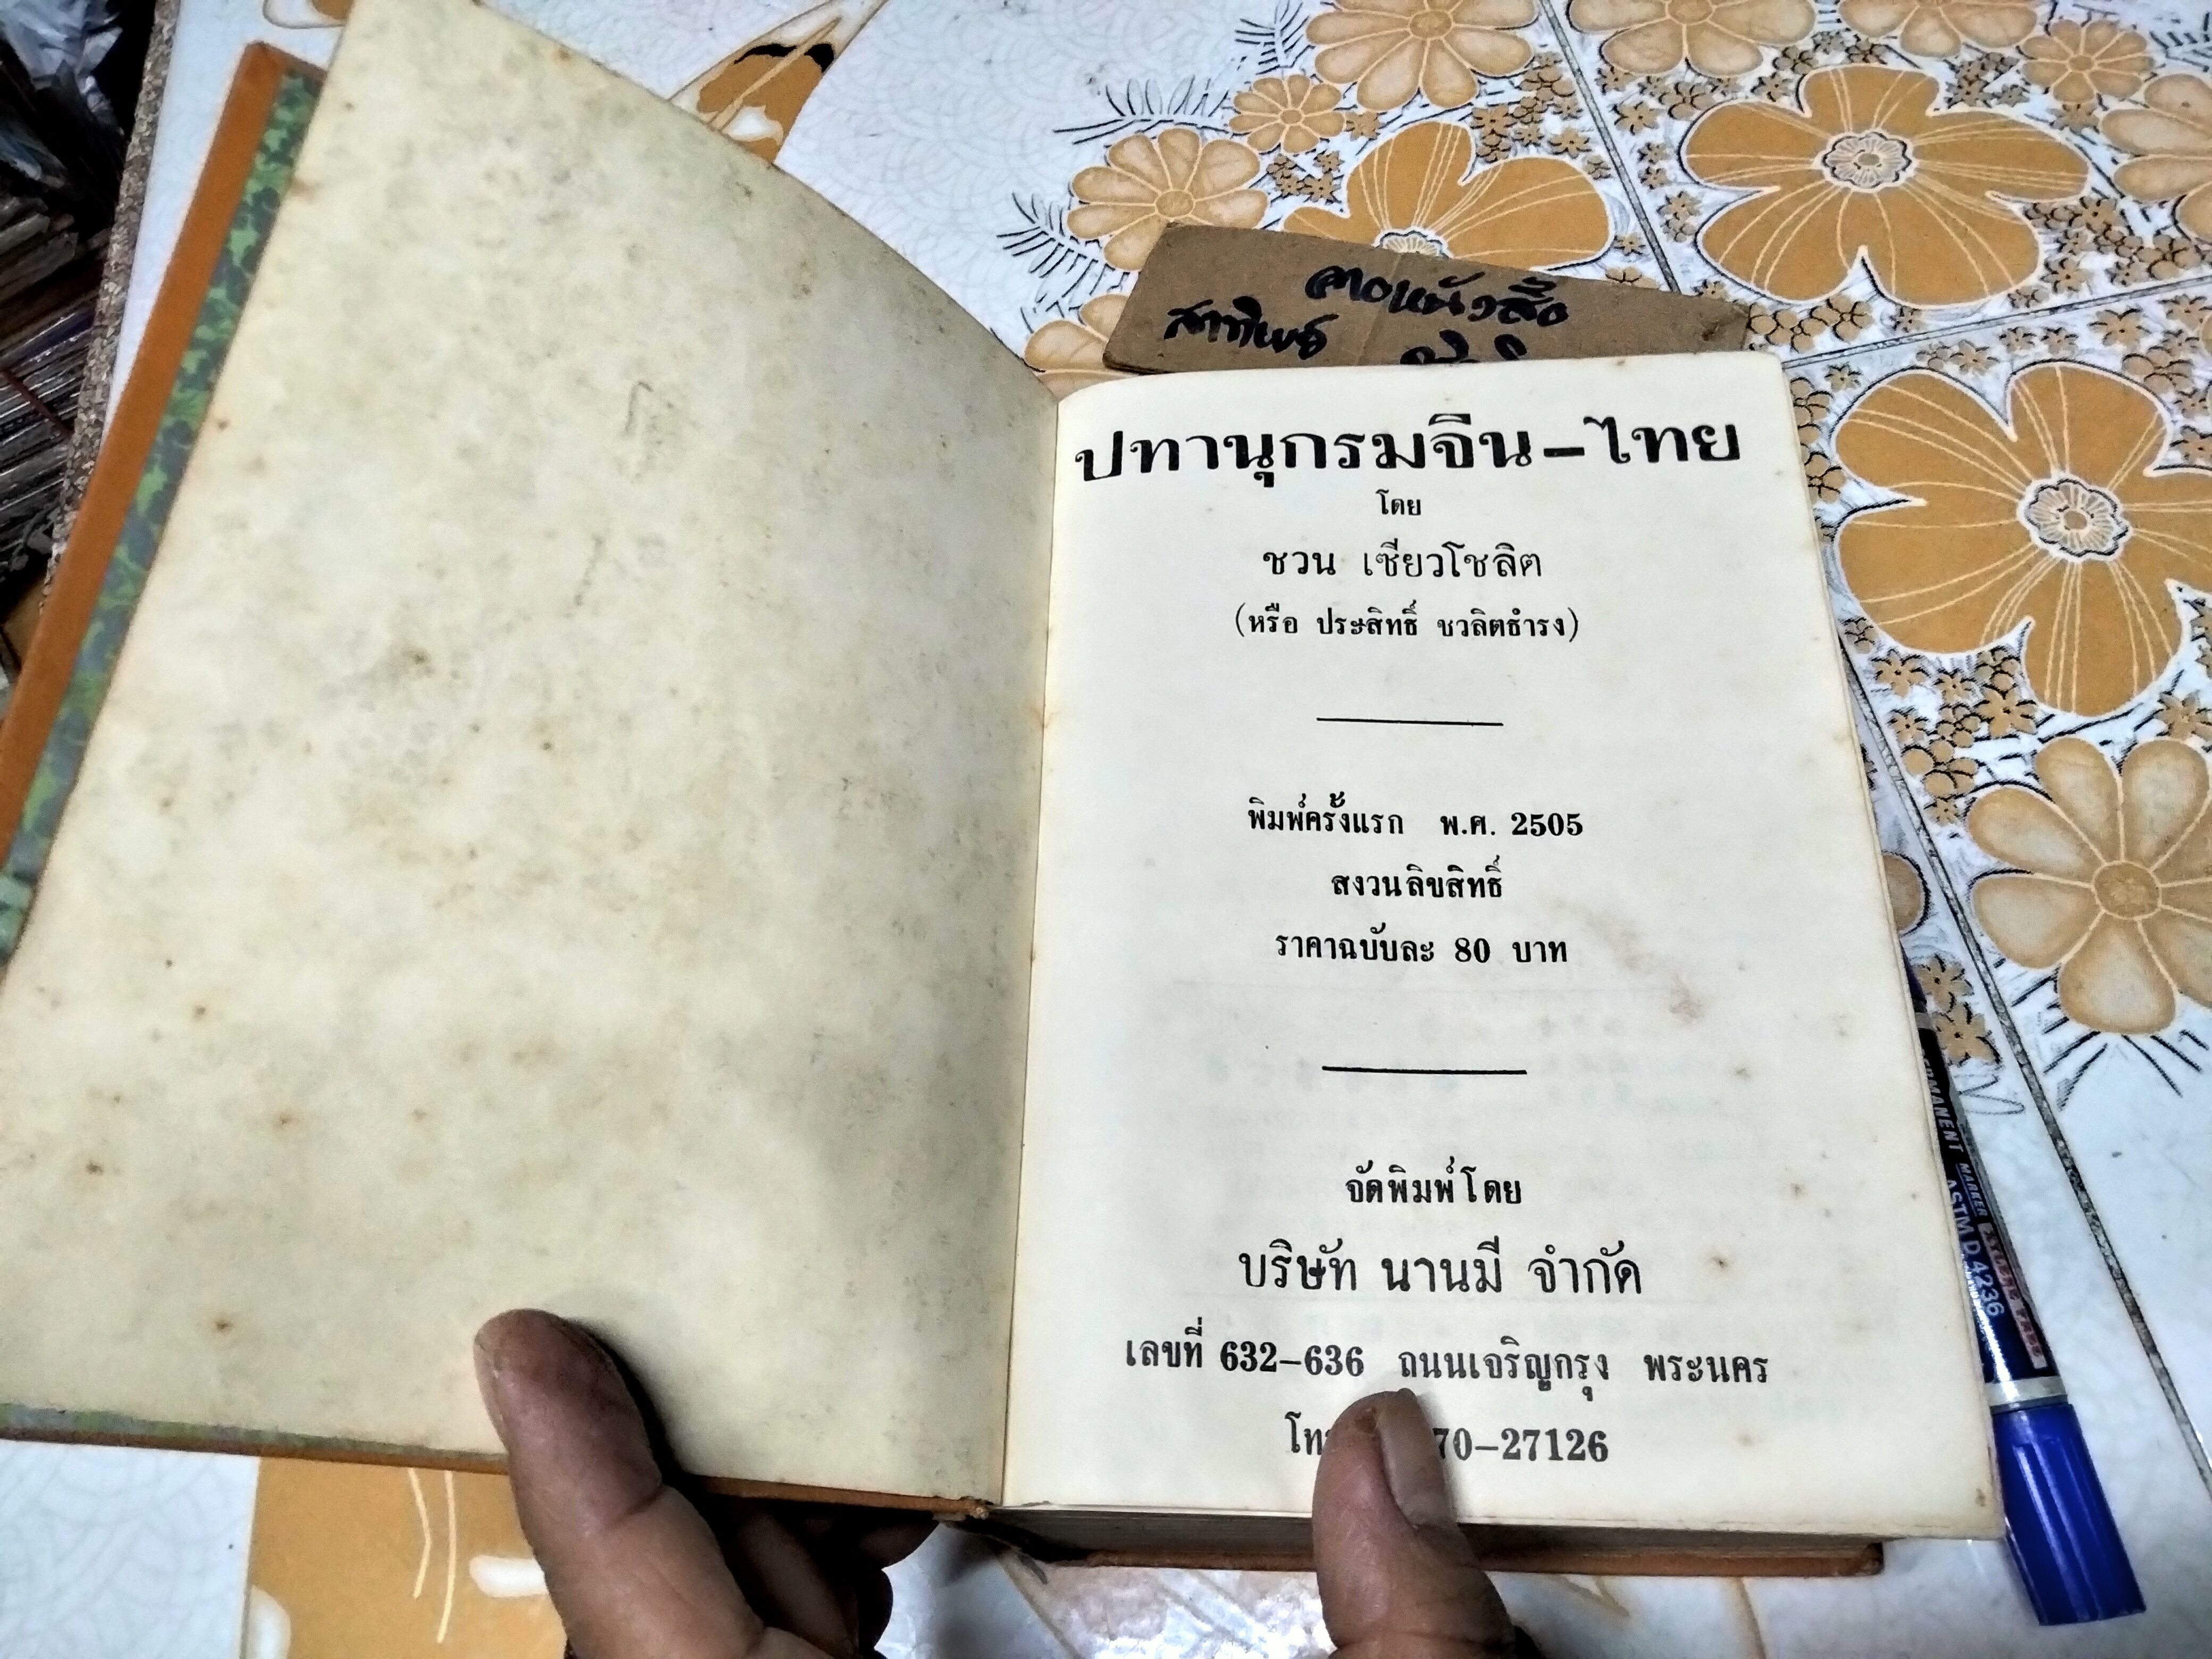 ลาดหนังสือ
ปทานุกรมจีน–ไทย
โดย
ชวน เซียวโชลิต
(หรือ ประสิทธิ์ ชวลิตธำรง)
พิมพ์ครั้งแรก พ.ศ. 2505
สงวนลิขสิทธิ์
ราคาฉบับละ 80 บาท
จัดพิมพ์โดย
บริษัท นานมี จำกัด
เลขที่ 632–636 ถนนเจริญกรุง พระนคร
70–27126
PERMANENT MARKER
ASTM D. 4236